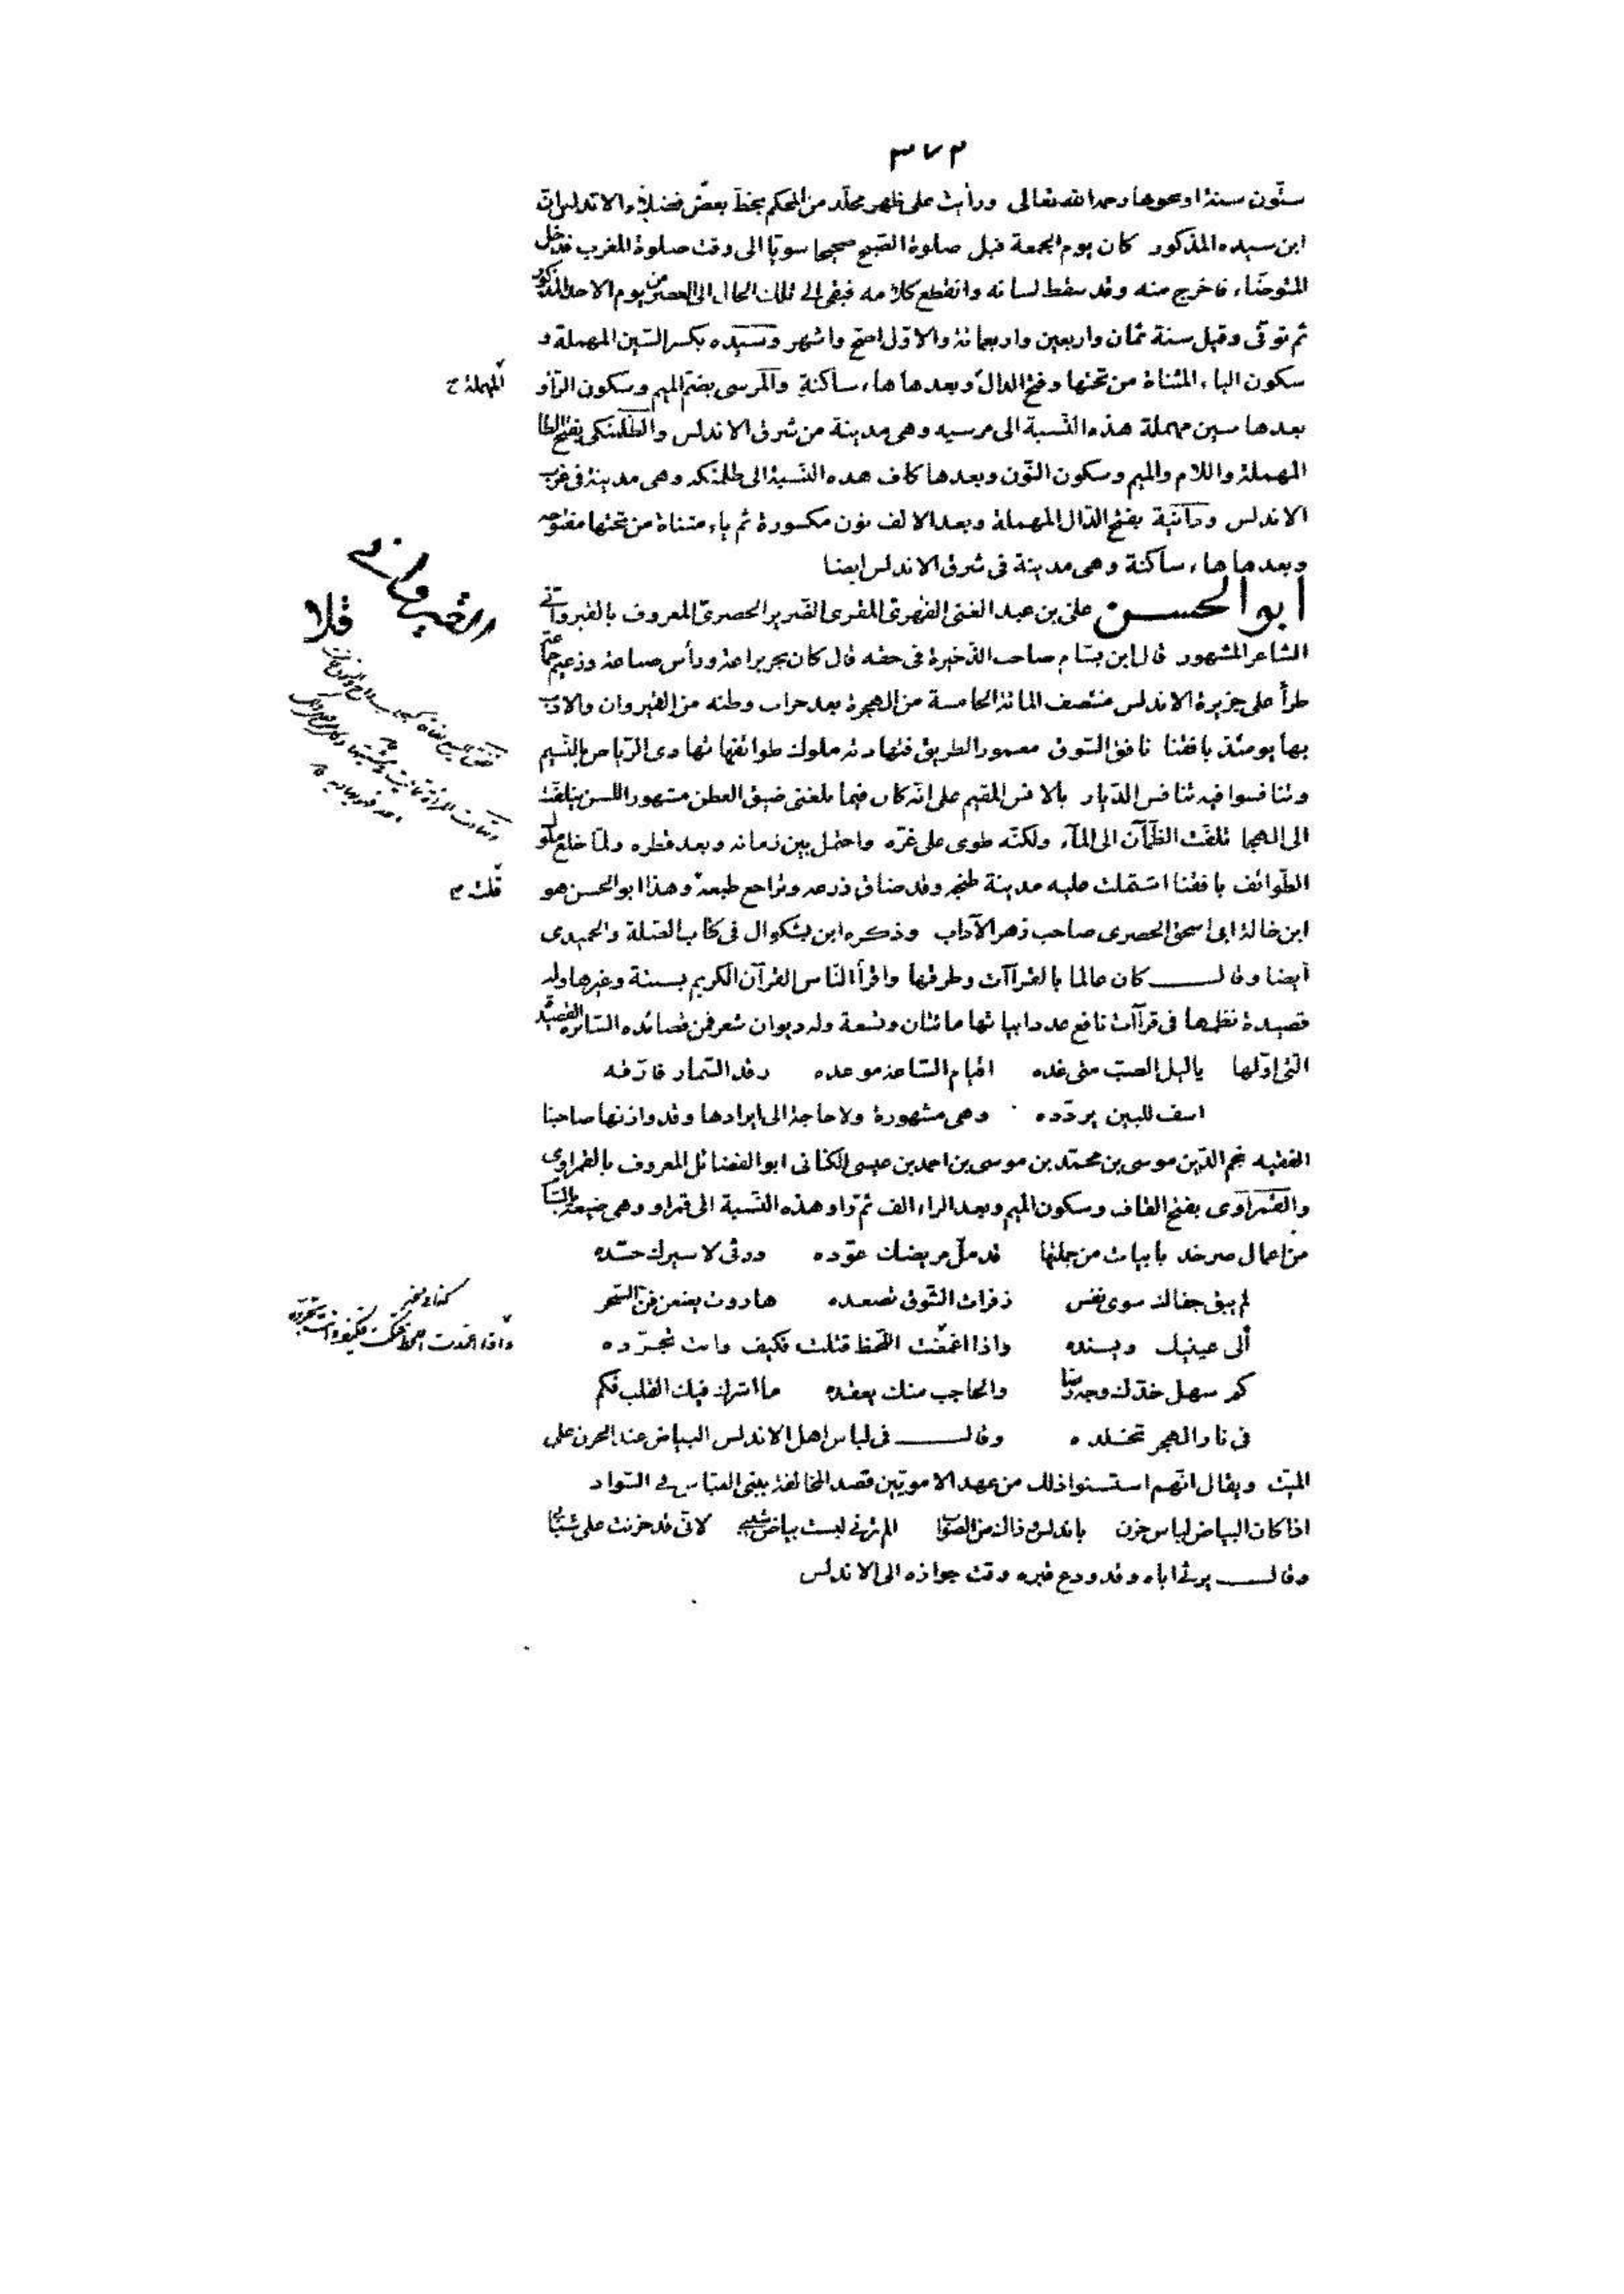 ٣٧٢
ستّون سنة او نحوها رحمه الله تعالى ورأيت على ظهر مجلّد من المحكم بخطّ بعض فضلاء الاندلس انّ
ابن سيده المذكور كان يوم الجمعة قبل صلوة الصّبح صحيحا سويّا الى وقت صلوة المغرب فدخل
المتوضّاء فاخرج منه وقد سقط لسانه وانقطع كلامه فبقى الى تلك الحال الى العصر من يوم الاحد المذكور
ثم توفّى وقيل سنة ثمان واربعين واربعمائة والاوّل اصحّ واشهر وسيّده بكسر السّين المهملة و
سكون الياء المثناة من تحتها وفتح الدال وبعدها هاء ساكنة والمرسى بضمّ الميم وسكون الرّاء و
المهملة ح
بعدها سين مهملة هذه النّسبة الى مرسيه وهى مدينة من شرقى الاندلس والطّلمنكى بفتح الطا
المهملة واللام والميم وسكون النّون وبعدها كاف هذه النّسبة الى طلمنكه وهى مدينة فى غرب
الاندلس ودانية بفتح الدّال المهملة وبعد الالف نون مكسورة ثم ياء مثناة من تحتها مفتوحه
وبعدها هاء ساكنة وهى مدينة فى شرق الاندلس ايضا
ابو الحسن على بن عبد الغنى الفهرىّ المقرى الضّرير الحصرىّ المعروف بالقيروانّى
القيروانے
الشاعر المشهور قال ابن بسّام صاحب الذّخيرة فى حقه قال كان بحر براعة ورأس صناعة وزعيم جماعة
طرأ على جزيرة الاندلس منتصف المائة الخامسة من الهجرة بعد خراب وطنه من القيروان والادب
بها يومئذ بافقنا نافق السّوق معمور الطريق فتهادته ملوك طوائفها تهادى الرّياض بالنّسيم
وتنافسوا فيه تنافس الدّيار بالانس المقيم على انّه كان فيما بلغنى ضيق العطن مشهور اللسن يتلفّت
الى الهجا تلفّت الظّمآن الى المآء ولكنّه طوى على غرّه واحتمل بين زمانه وبعد قطره ولمّا خلع ملو
الطّوائف بافقنا اشتملت عليه مدينة طنجه وقد ضاق ذرعه وتراجع طبعه وهذا ابو الحسن هو
قلت م
ابن خالة ابى اسحق الحصرى صاحب زهر الآداب وذكره ابن بشكوال فى كتاب الصّلة والحميدى
أيضا وقال كان عالما بالقراآت وطرقها واقرأ النّاس القرآن الكريم بسبتة وغيرها وله
قصيدة نظمها فى قراآت نافع عدد ابياتها مائتان وتسعة وله ديوان شعر فمن قصائده السّائره القصيدة
الّتى اوّلها يا ليل الصبّ متى غده اقيام السّاعة موعده رقد السّمار فارّقه
اسف للبين يردّده وهى مشهورة ولا حاجة الى ايرادها وقد وازنها صاحبنا
الفقيه نجم الدّين موسى بن محمّد بن موسى بن احمد بن عيسى الكنانى ابو الفضائل المعروف بالقمراوى
والقمراوى بفتح القاف وسكون الميم وبعد الراء الف ثم واو هذه النّسبة الى قمراو وهى ضيعة بالشّا
من اعمال صرخد بابيات من جملتها قد ملّ مريضك عوّده ورثى لاسيرك حسّده
لم يبق جفاك سوى نفس زفرات الشّوق تصعده هاروت يعنعن فنّ السّحر
ألى عينيك ويسنده واذا اغمّت اللّحظ قتلت فكيف وانت تجرّده
كم سهل خدّك وجه رضا والحاجب منك يعقده ما اشرك فيك القلب فكم
فى نار الهجر تخلده وقال فى لباس اهل الاندلس البياض عند الحزن على
الميّت ويقال انّهم استسنوا ذلك من عهد الامويّين قصد المخالفة ببنى العبّاس فى السّواد
اذا كان البياض لباس حزن باندلس فذاك من الصّواب الم ترنى لبست بياض شيبى لانّى قد حزنت على شبابى
وقال يرثى اباه وقد ودع قبره وقت جوازه الى الاندلس